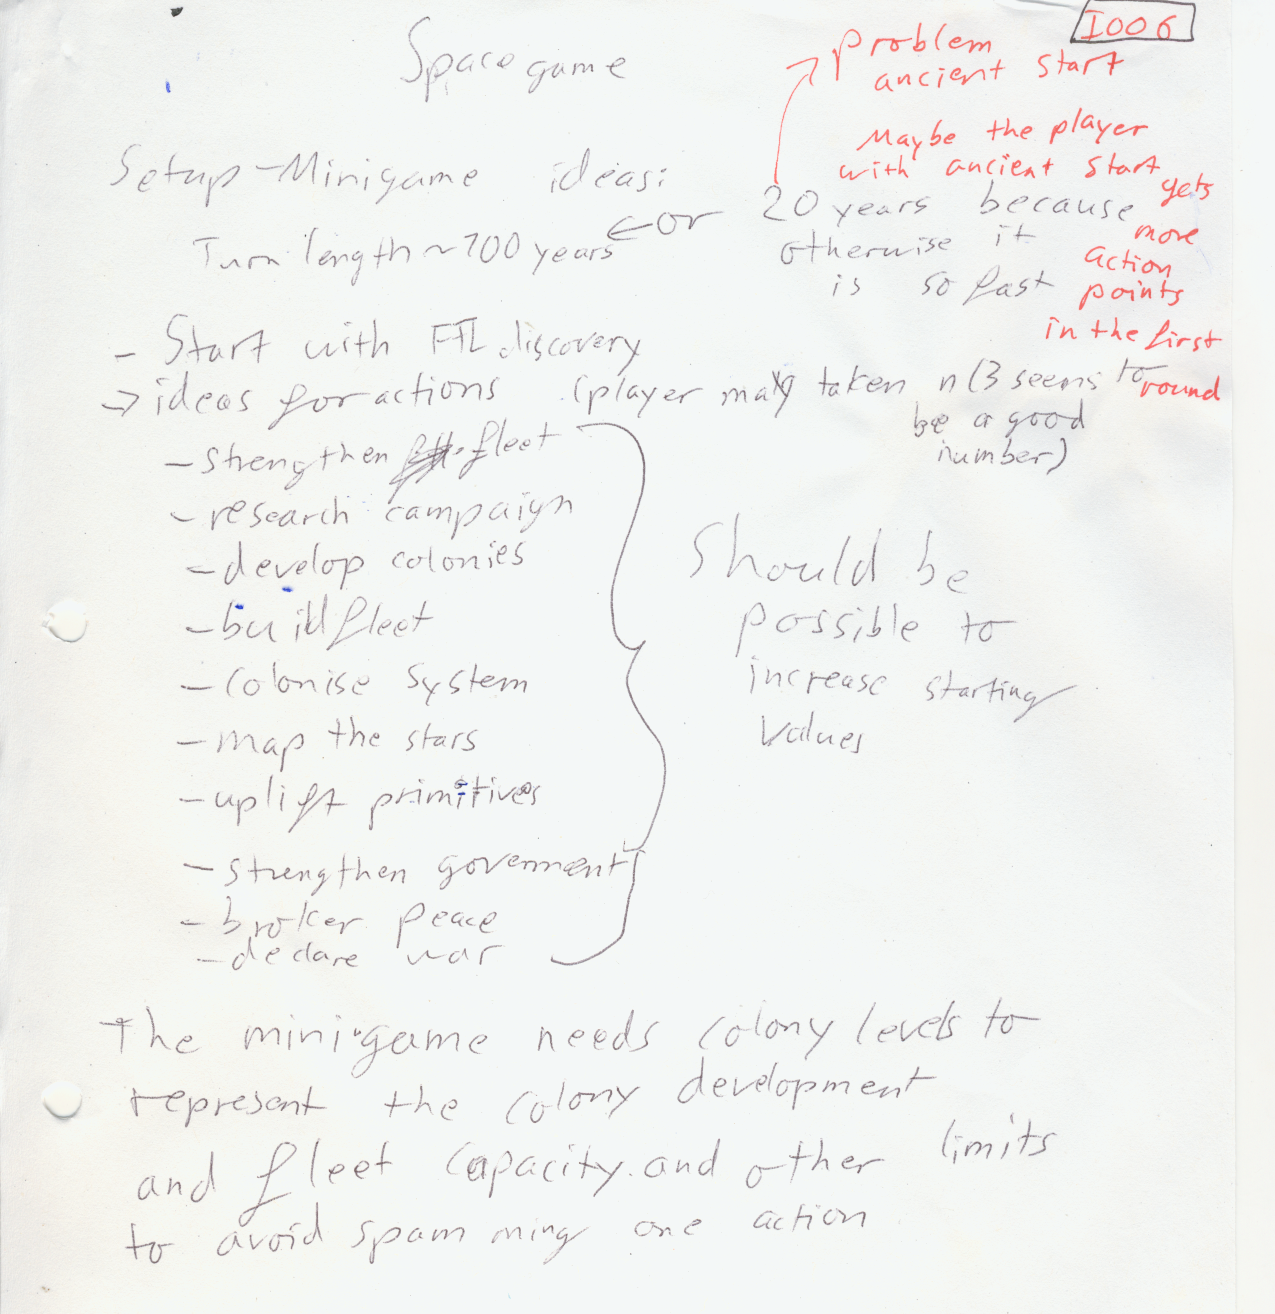 I006
Space game
problem
ancient start
Maybe the player
with ancient start
gets
more
action
points
in the first
round
Setup-Minigame ideas:
Turn length ~100 years
or 20 years because
otherwise it
is so fast
- Start with FTL discovery
→ ideas for actions (player may taken n (3 seems to
be a good
number)
- strengthen fleet
- research campaign
- develop colonies
- build fleet
- colonise system
- map the stars
- uplift primitives
- strengthen goverment
- broker peace
- declare war
Should be
possible to
increase starting
values
The mini-game needs colony levels to
represent the colony development
and fleet capacity and other limits
to avoid spamming one action